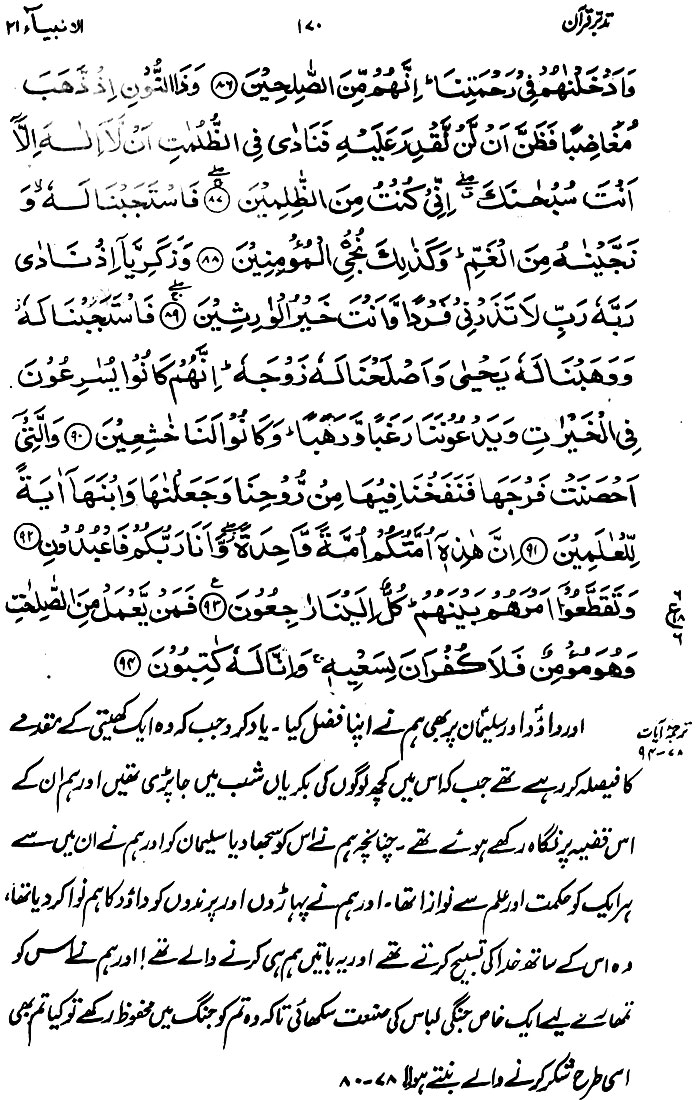 تدبرِ قرآن ۱۷۰ الانبیآء ۲۱
وَاَدْخَلْنٰهُمْ فِيْ رَحْمَتِنَا ۭ اِنَّهُمْ مِّنَ الصّٰلِحِيْنَ ۝۸۶ وَذَا النُّوْنِ اِذْ ذَّهَبَ
مُغَاضِبًا فَظَنَّ اَنْ لَّنْ نَّقْدِرَ عَلَيْهِ فَنَادٰى فِي الظُّلُمٰتِ اَنْ لَّآ اِلٰهَ اِلَّآ
اَنْتَ سُبْحٰنَكَ ڰ اِنِّىْ كُنْتُ مِنَ الظّٰلِمِيْنَ ۝۸۷ فَاسْتَجَبْنَا لَهٗ ۙ وَ
نَجَّيْنٰهُ مِنَ الْغَمِّ ۭ وَكَذٰلِكَ نُـنْجِي الْمُؤْمِنِيْنَ ۝۸۸ وَزَكَرِيَّآ اِذْ نَادٰى
رَبَّهٗ رَبِّ لَا تَذَرْنِيْ فَرْدًا وَّاَنْتَ خَيْرُ الْوٰرِثِيْنَ ۝۸۹ فَاسْتَجَبْنَا لَهٗ
وَوَهَبْنَا لَهٗ يَحْيٰى وَاَصْلَحْنَا لَهٗ زَوْجَهٗ ۭ اِنَّهُمْ كَانُوْا يُسٰرِعُوْنَ
فِي الْخَيْرٰتِ وَيَدْعُوْنَنَا رَغَبًا وَّرَهَبًا ۭ وَكَانُوْا لَنَا خٰشِعِيْنَ ۝۹۰ وَالَّتِيْٓ
اَحْصَنَتْ فَرْجَهَا فَنَفَخْنَا فِيْهَا مِنْ رُّوْحِنَا وَجَعَلْنٰهَا وَابْنَهَآ اٰيَةً
لِّلْعٰلَمِيْنَ ۝۹۱ اِنَّ هٰذِهٖٓ اُمَّتُكُمْ اُمَّةً وَّاحِدَةً ڮ وَّاَنَا رَبُّكُمْ فَاعْبُدُوْنِ ۝۹۲
وَتَقَطَّعُوْٓا اَمْرَهُمْ بَيْنَهُمْ ۭ كُلٌّ اِلَيْنَا رٰجِعُوْنَ ۝۹۳ فَمَنْ يَّعْمَلْ مِنَ الصّٰلِحٰتِ
وَهُوَ مُؤْمِنٌ فَلَا كُفْرَانَ لِسَعْيِهٖ ۚ وَاِنَّا لَهٗ كٰتِبُوْنَ ۝۹۴
ترجمۂ آیات
۷۸-۹۴
اور داؤد اور سلیمان پر بھی ہم نے اپنا فضل کیا۔ یاد کرو جب کہ وہ ایک کھیتی کے مقدمے
کا فیصلہ کر رہے تھے جب کہ اس میں کچھ لوگوں کی بکریاں شب میں جا پڑی تھیں اور ہم ان کے
اس قضیہ پر نگاہ رکھے ہوئے تھے۔ چنانچہ ہم نے اس کو سجھا دیا سلیمان کو اور ہم نے ان میں سے
ہر ایک کو حکمت اور علم سے نوازا تھا۔ اور ہم نے پہاڑوں اور پرندوں کو داؤد کا ہم نوا کر دیا تھا،
وہ اس کے ساتھ خدا کی تسبیح کرتے تھے اور یہ باتیں ہم ہی کرنے والے تھے! اور ہم نے اس کو
تمھارے لیے ایک خاص جنگی لباس کی صنعت سکھائی تاکہ وہ تم کو جنگ میں محفوظ رکھے تو کیا تم بھی
اسی طرح شکر کرنے والے بنتے ہو!! ۷۸-۸۰